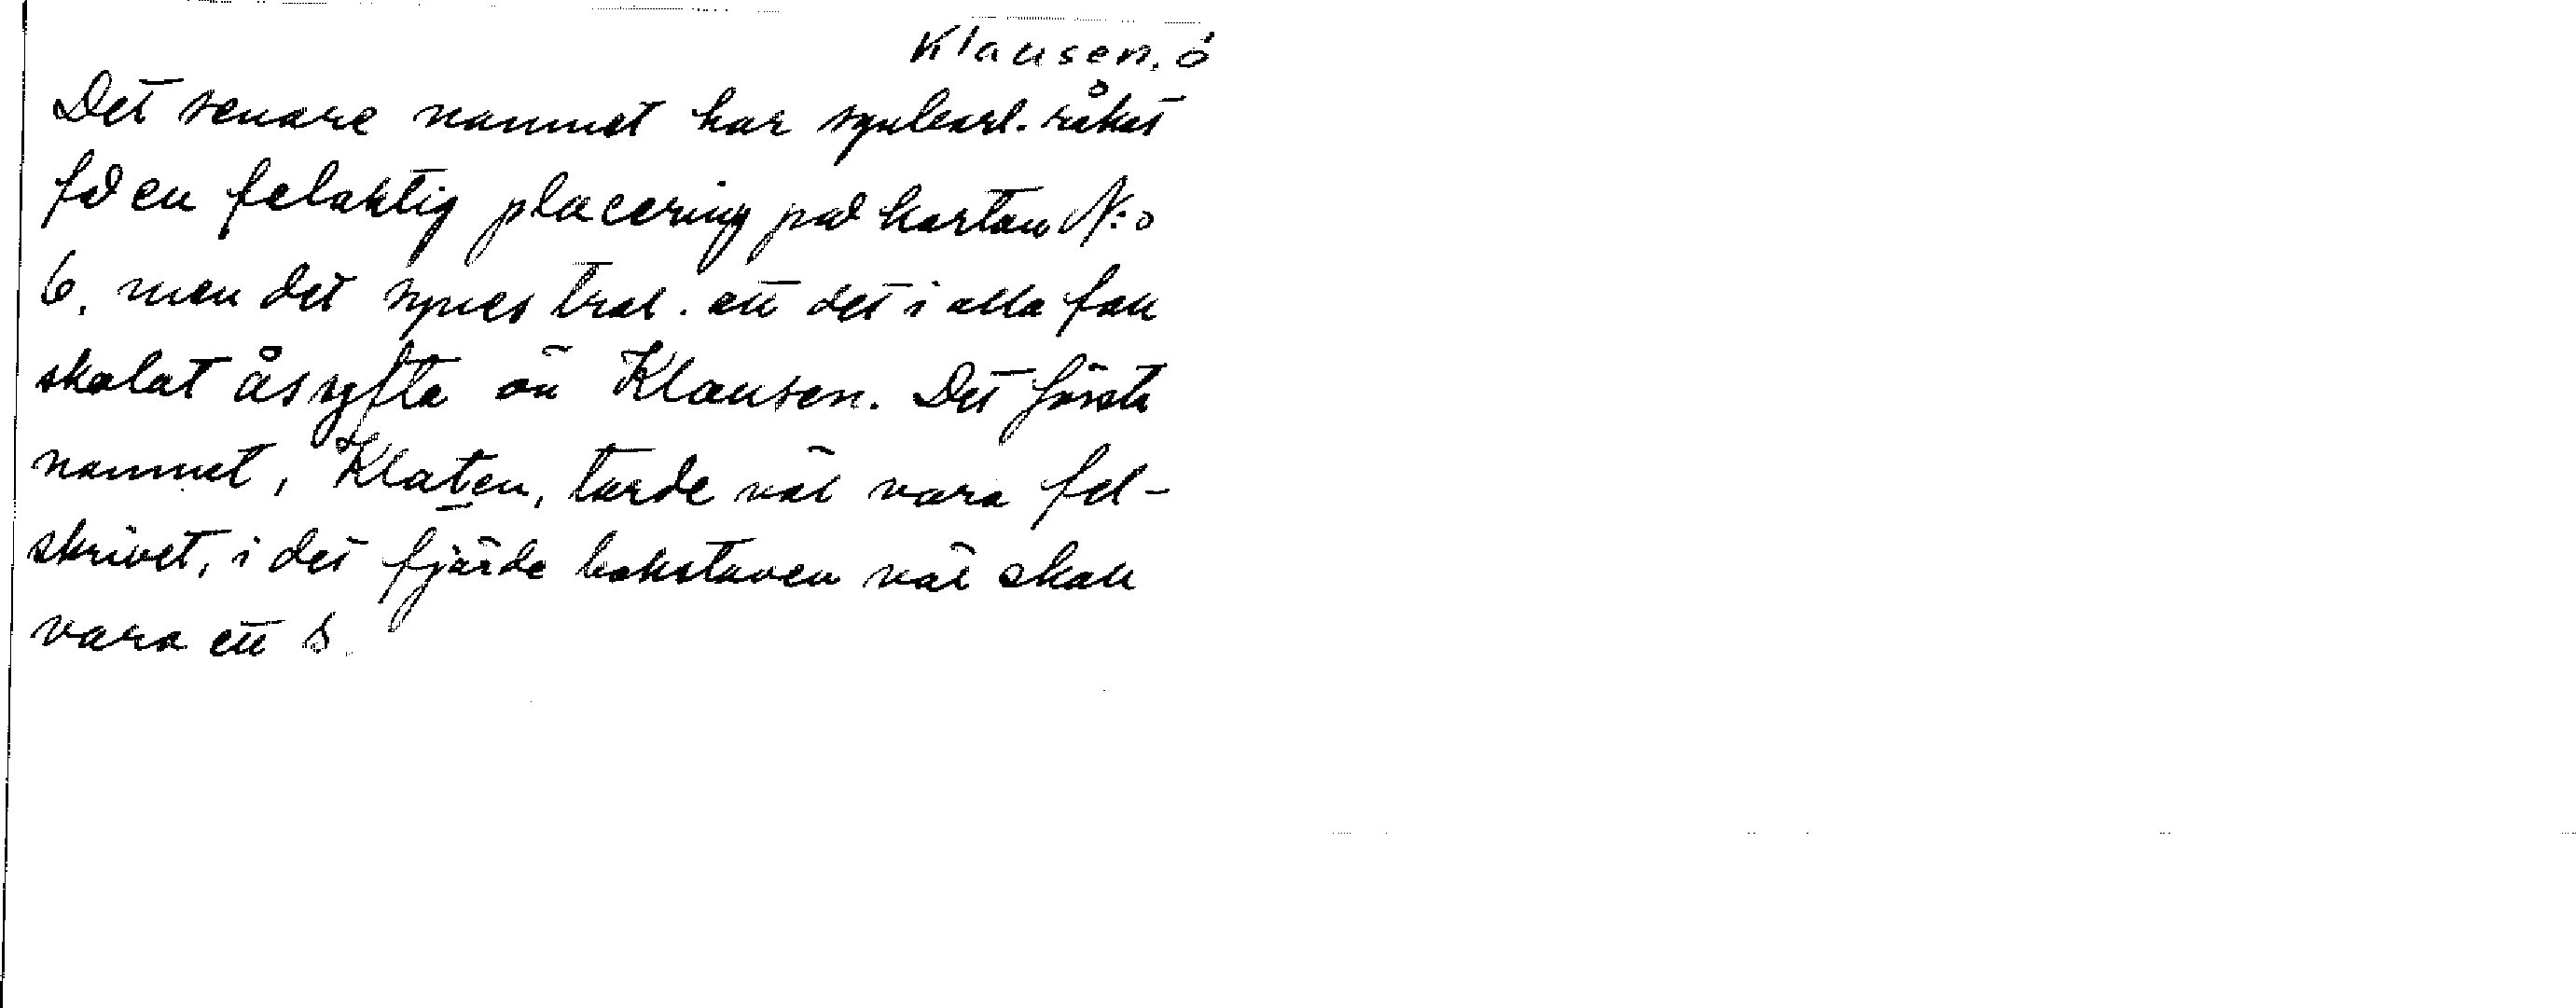 Klausen, ö
Det senare namnet har synbarl. råkat
få en felaktig placering på kartan N:o
6, men det synes trol. att det i alla fall
skolat åsyfta ön Klausen. Det första
namnet, Klaten, torde väl vara fel-
skrivet, i det fjärde bokstaven väl skall
vara ett s.